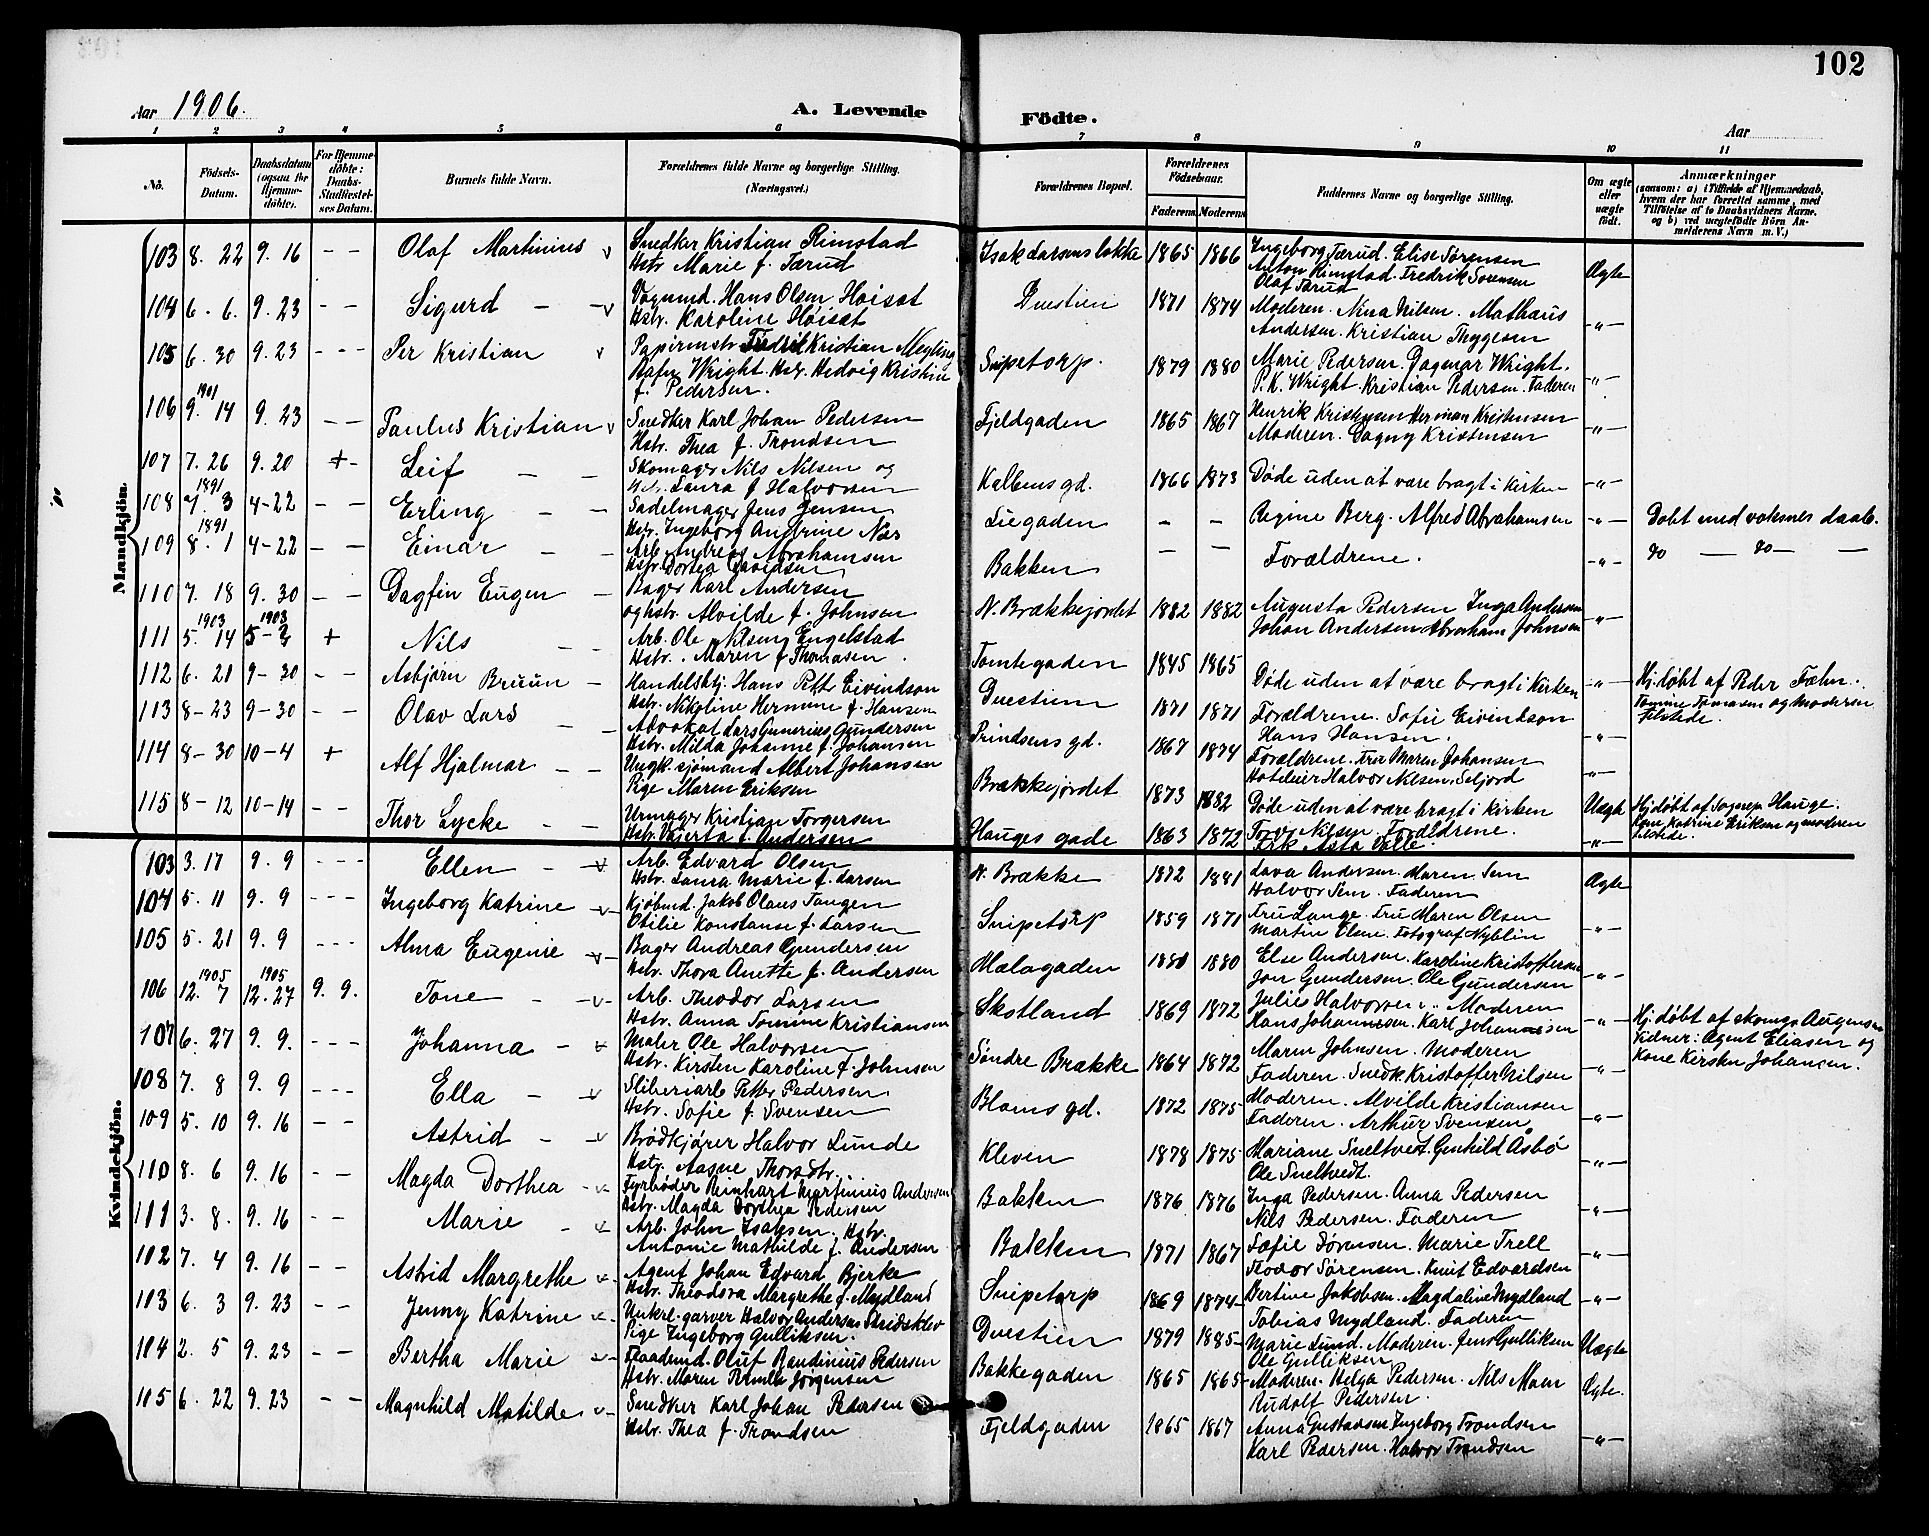 102
Aar 1906.
A. Levende Födte.
Aar
1 2 3 4 5 6 7 8 9 10 11
No. Födsels-Datum. Daabsdatum (ogsaa for Hjemmedöbte). For Hjemmedöbte: Daabs-Stadfæstelses Datum. Barnets fulde Navn. Forældrenes fulde Navne og borgerlige Stilling. (Næringsvei.) Forældrenes Bopæl. Forældrenes Födselsaar. Faderens Moderens Faddernes Navne og borgerlige Stilling. Om ægte eller uægte födt. Anmærkninger (saasom: a) i Tilfælde af Hjemmedaab, hvem der har forrettet samme, med Tilföielse af to Daabsvidners Navne, og b) ved uægtefödte Börn Anmelderens Navn m. V.)
Mandkjön.
103 8. 22 9. 16 - - Olaf Martinius v Snedker Kristian Rimstad
Hstr Marie f. Tærud Isak Larsens løkke 1865 1866 Ingeborg Tærud. Elise Sørensen
Anton Rimstad. Fredrik Sørensen
Olaf Tærud Ægte
104 6. 6. 9. 23 - - Sigurd - v Vognmd. Hans Olsen Høisæt
Hstr. Karoline Høisæt Duestien 1871 1874 Moderen. Nina Nilsen. Mathæus
Andersen. Kristian Thygesen -"-
105 6. 30 9. 23 - - - Per Kristian v Papirmstr Fredrik Kristian Meyling
Stafer Wright. Hstr. Hedvig Kristine
f. Pedersen. Snipetorp. 1879 1880 Marie Pedersen. Dagmar Wright.
P. K. Wright. Kristian Pedersen. Faderen -"-
106 1901 9. 14 9. 23 - - Paulus Kristian v Snedker Karl Johan Pedersen
Hstr. Thea f. Trondsen Fjeldgaden 1865 1867 Henrik Kristensen Herman Kristensen
Moderen. Dagny Kristensen -"-
107 7. 26 9. 20 + - Leif - - Skomager Nils Nilsen og
Laura f Halvorsen Kalbens gd. 1866 1873 Døde uden at være bragt i kirken -"-
108 1891 7. 3 4-22 - - Erling - - Sadelmager Jens Jensen
Hstr. Ingeborg Andrine Næs Liegaden - - Regine Berg. Alfred Abrahamsen -"- Døbt med voksnes daab.
109 1891 8. 1 4-22 - - Einar - - Arb. Andreas Abrahamsen
Hstr. Dortea Davidsen Bakken - - Forældrene. -"- do - do -
110 7. 18 9. 30 - - Dagfin Eugen - Bager Karl Andersen
og hstr. Alvilde f. Johnsen N. Brækkejordet 1882 1882 Augusta Pedersen Inga Andersen
Johan Andersen Abraham Johnsen -"-
111 1903 5. 14 1903 5-2 + Nils - - Arb. Ole Nilsen Engelstad
Hstr. Maren f Thomasen. Tomtegaden 1845 1865 Døde uden at være bragt i kirken -"- Hj. døbt af Peder Fæhn.
Tomine Tomasen og moderen
tilstede.
112 6. 21 9-30 - - Asbjørn Bruun - Handelsbtj. Hans Petter Eivindson
Hstr. Nikoline Hermine f. Hansen Duestien 1871 1871 Forældrene. Sofie Eivindson
Hans Hansen. -"-
113 8-23 9-30 - - Olav Lars - - Advokat Lars Gunerius Gundersen
Hstr. Milda Johanne f. Johansen Prindsens gd. 1867 1874 Forældrene. Fru Maren Johansen
Hotelier Halvor Nilsen, Seljord -"-
114 8-30 10-4 + Alf Hjalmar - - Ungk. sjømand Albert Johansen
Pige Maren Eriksen Brækkejordet 1873 1882 Døde uden at være bragt i kirken Uægte Hj. døbt af Sognep. Hauge.
Kone Katrine Eriksen og moderen
tilstede.
115 8-12 10-14 Thor Lycke - - Urmager Kristian Torgersen
Hstr. f. Andersen Hauges gade 1863 1872 Torv. Nilsen. Forældrene.
Frk Asta Valle. -"-
Kvindekjön.
103 3. 17 9. 9 - - - Ellen - v Arb. Edvard Olsen
Hstr. Laura Marie f. Larsen N. Brække 1872 1881 Lava Andersen. Maren Sem
Halvor Sem. Faderen Ægte
104 5. 11 9. 9 - - - Ingeborg Katrine v Kjøbmd. Jakob Olaus Tangen
Otilie Konstanse f. Larsen Snipetorp 1859 1871 Fru Lange. Fru Maren Olsen
Martin Olsen. Fotograf Nyblin -"-
105 5. 21 9. 9 - - - Alma Eugenie v Bager Andreas Gundersen
Hstr. Thora Anette f. Andersen Mælagaden 1880 1880 Else Andersen. Karoline Kristoffersen
Jon Gundersen. Ole Gundersen -"-
106 1905 12. 7 1905 12. 27 9. 9. Tone - v Arb. Theodor Larsen
Hstr. Anna Tomine Kristiansen Skotland 1869 1872 Julie Halvorsen. Moderen
Hans Johannessen. Karl Johannessen -"- Hj. døbt af skomgr. Augensen
Vidner: Agent Eliasen og
Kone Kirsten Johansen.
107 6. 27 9. 9. - - - Johanna - v Maler Ole Halvorsen
Hstr. Kirsten Karoline f. Johnsen Søndre Brække 1864 1872 Maren Johnsen. Moderen
Faderen. Snedk Kristoffer Nilsen -"-
108 7. 8 9. 9 - - - Ella - v Sliberiarb Petter Pedersen
Hstr. Sofie f. Svensen Bloms gd. 1872 1875 Moderen. Alvilde Kristiansen
Faderen. Arthur Svensen -"-
109 5. 10 9. 16 - - Astrid - v Brødkjører Halvor Lunde
Hstr. Aasne Thorsdtr. Kleven 1878 1875 Mariane Sneltvedt. Gunhild Åsbö
Ole Sneltvedt. -"-
110 8. 6 9. 16 - - Magda Dorthea - v Fyrbøder Reinhart Martinius Andersen
Hstr. Magda Dorthea Pedersen Bakken 1876 1876 Inga Pedersen. Anna Pedersen
Nils Pedersen. Faderen -"-
111 3. 8. 9. 16 - - Marie - v Arb. John Isaksen. Hstr.
Antonie Mathilde f. Andersen Bakken 1871 1867 Sofie Sørensen. Marie Trell
Teodor Sørensen. Knut Edvardsen -"-
102 7. 4 9. 16 - - Astrid Margrethe v Agent Johan Edvard Bjerke
Hstr. Theodora Margrethe f. Mydland Snipetorp 1869 1874 Bertine Jakobsen. Magdaline Mydland
Tobias Mydland. Faderen -"-
103 6. 3 9. 23 - - Jenny Katrine v Unkrl. garver Halvor Andersen Skredsklev
Pige Ingeborg Gulliksen. Duestien 1879 1885 Marie Lund. Moderen. Jens Gulliksen
Ole Gulliksen Uægte
104 2. 5 9. 23 - - Bertha Marie v Flaademd. Oluf Randinius Pedersen
Hstr. Maren Pernille Jørgensen Bakkegaden 1865 1865 Moderen. Helga Pedersen. Nils Moen
Rudolf Pedersen. Ægte.
105 6. 22 9. 23 - - Magnhild Matilde v Snedker Karl Johan Pedersen
Hstr. Thea f. Trondsen Fjeldgaden 1865 1867 Anna Gustavsen Ingeborg Trondsen
Karl Pedersen. Halvor Trondsen -"-